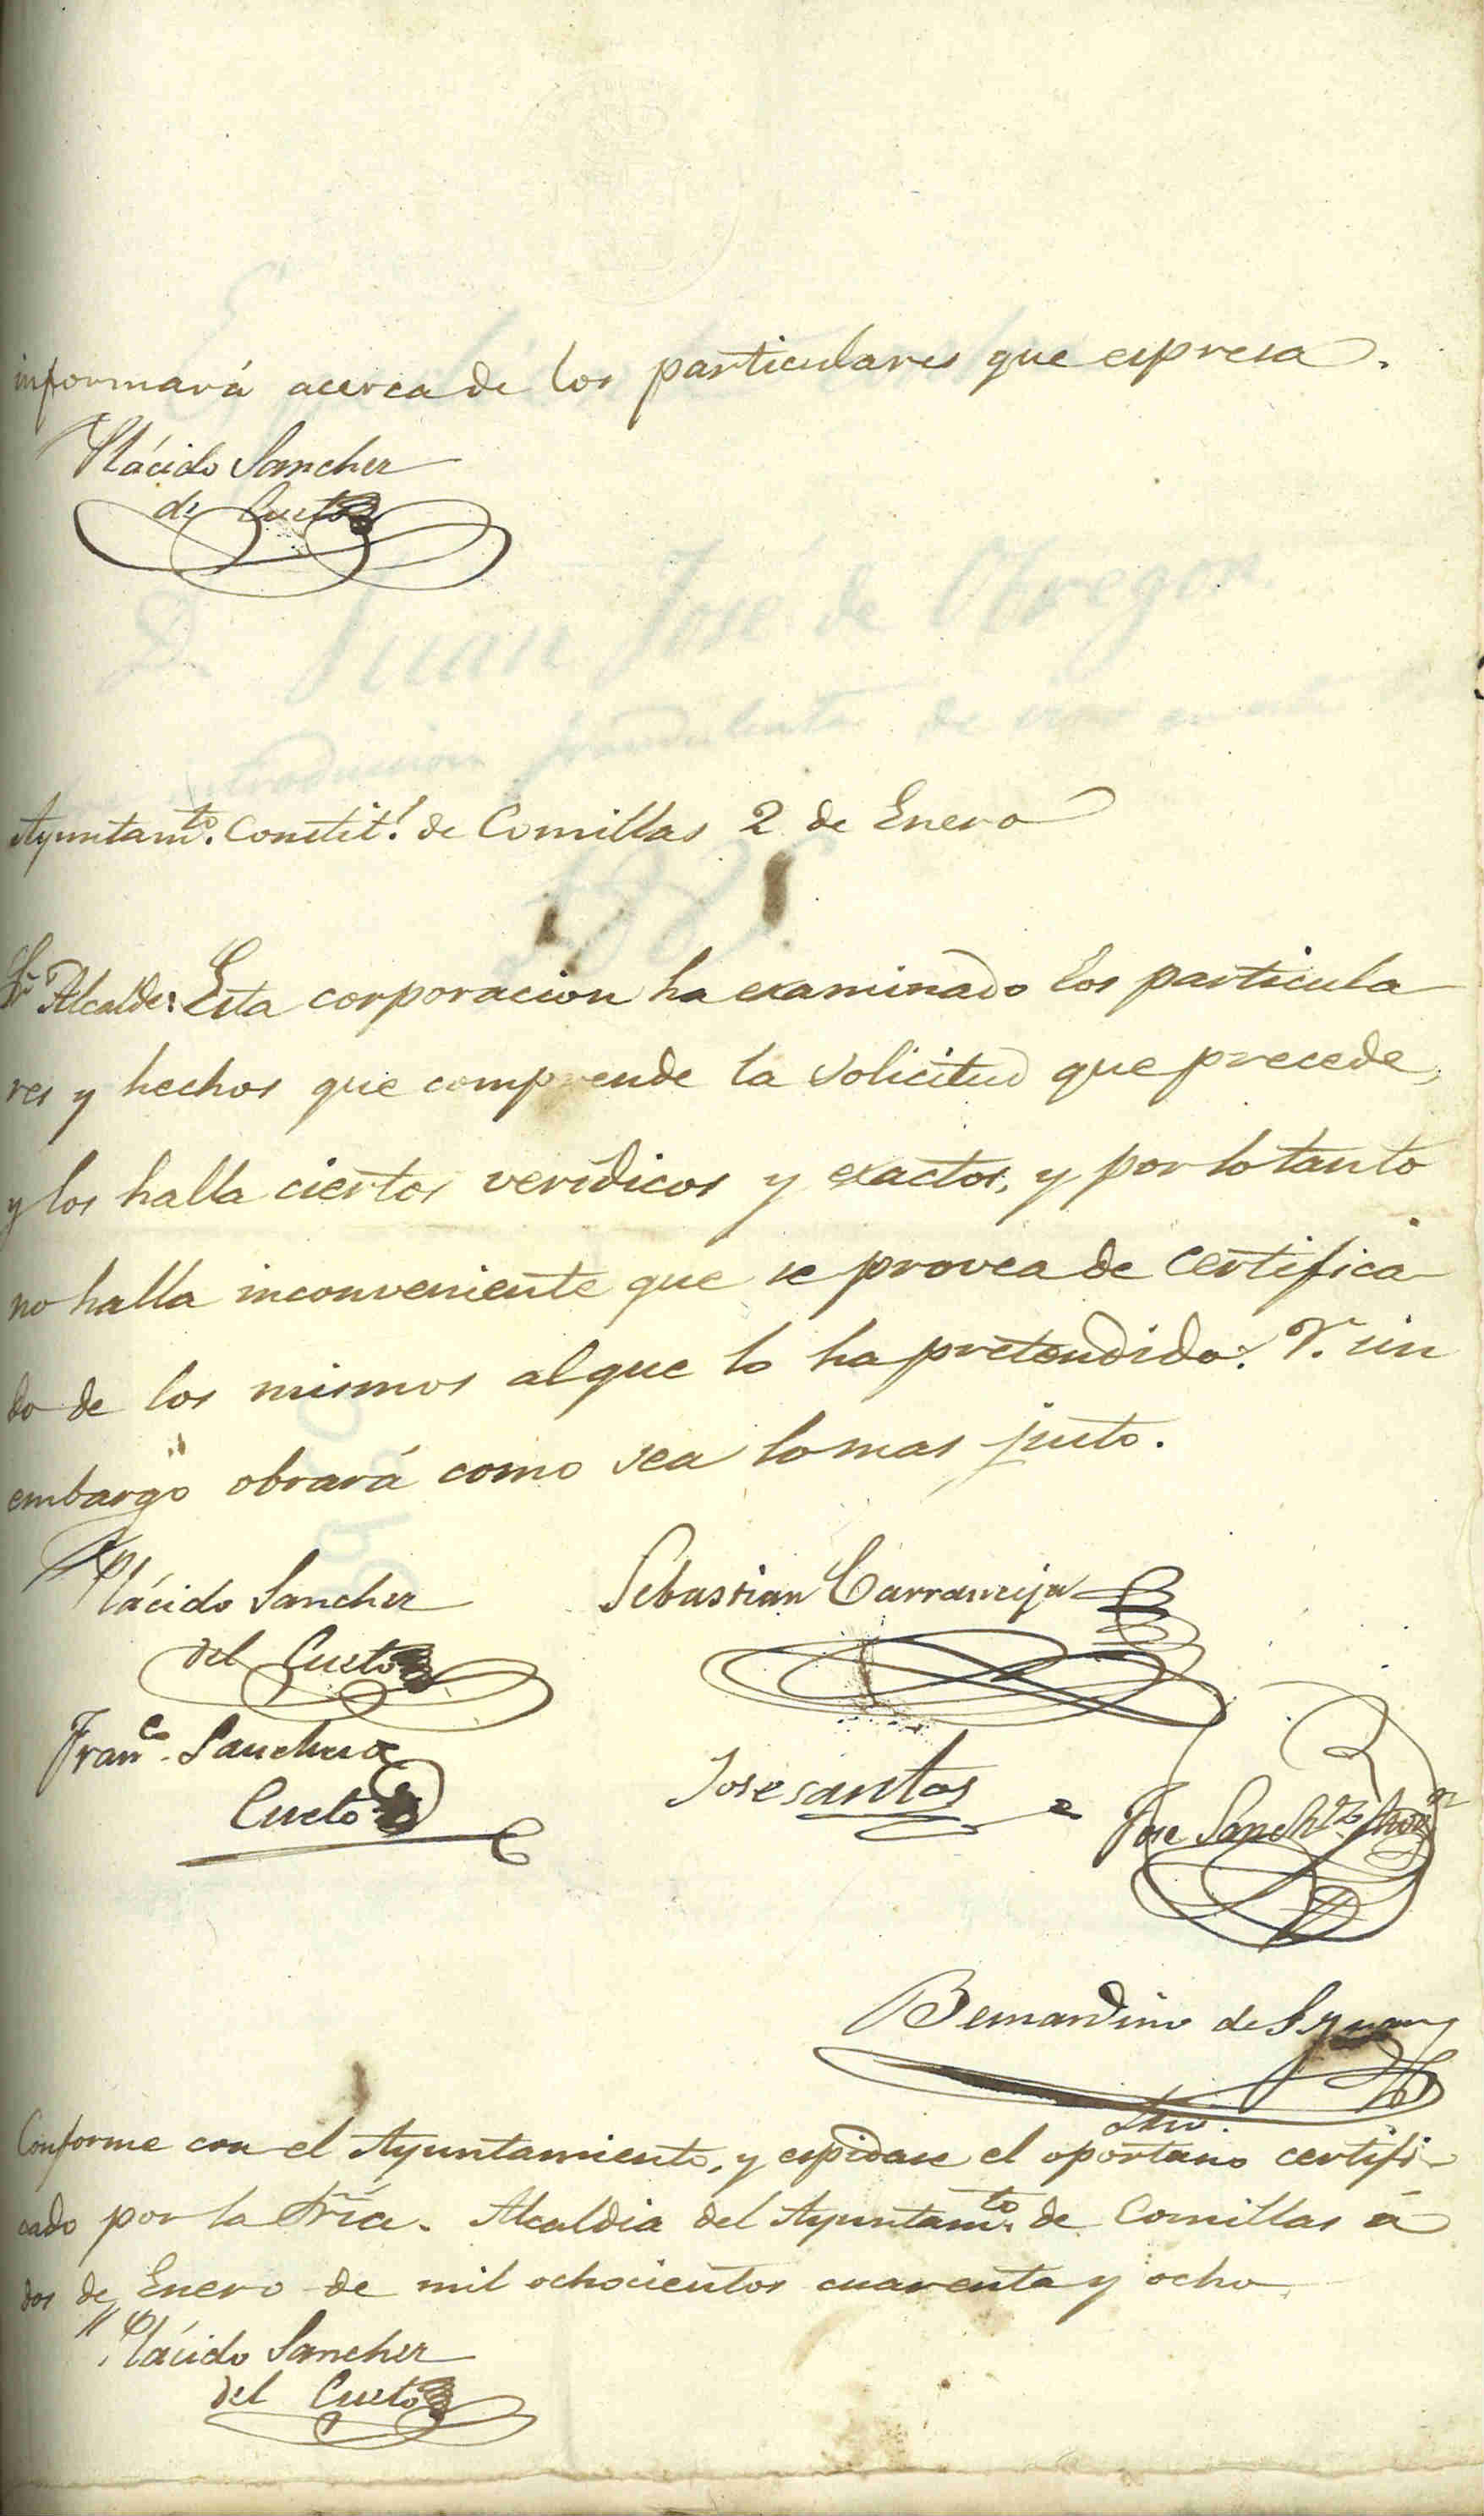 informará acerca de los particulares que espresa.
Plácido Sanchez
del Cueto
D. Juan José de Obregon
introduccion fraudulenta de
Ayuntamto. Constitl. de Comillas 2 de Enero
Sr. Alcalde: Esta corporacion ha examinado los particula
res y hechos que comprende la solicitud que precede,
y los halla ciertos verídicos y exactos, y por lo tanto
no halla inconveniente que se provea de certifica
do de los mismos al que lo ha pretendido: V. sin
embargo obrará como sea lo mas justo.
Plácido Sanchez
del Cueto
Sebastian Carranceja
Franco. Sanchez
Cueto
Jose santos
Jose Sanchez
Bernardino de
Srio.
Conforme con el Ayuntamiento, y espidase el oportuno certifi
cado por la Sría. Alcaldia del Ayuntamto. de Comillas á
dos de Enero de mil ochocientos cuarenta y ocho
Plácido Sanchez
del Cueto